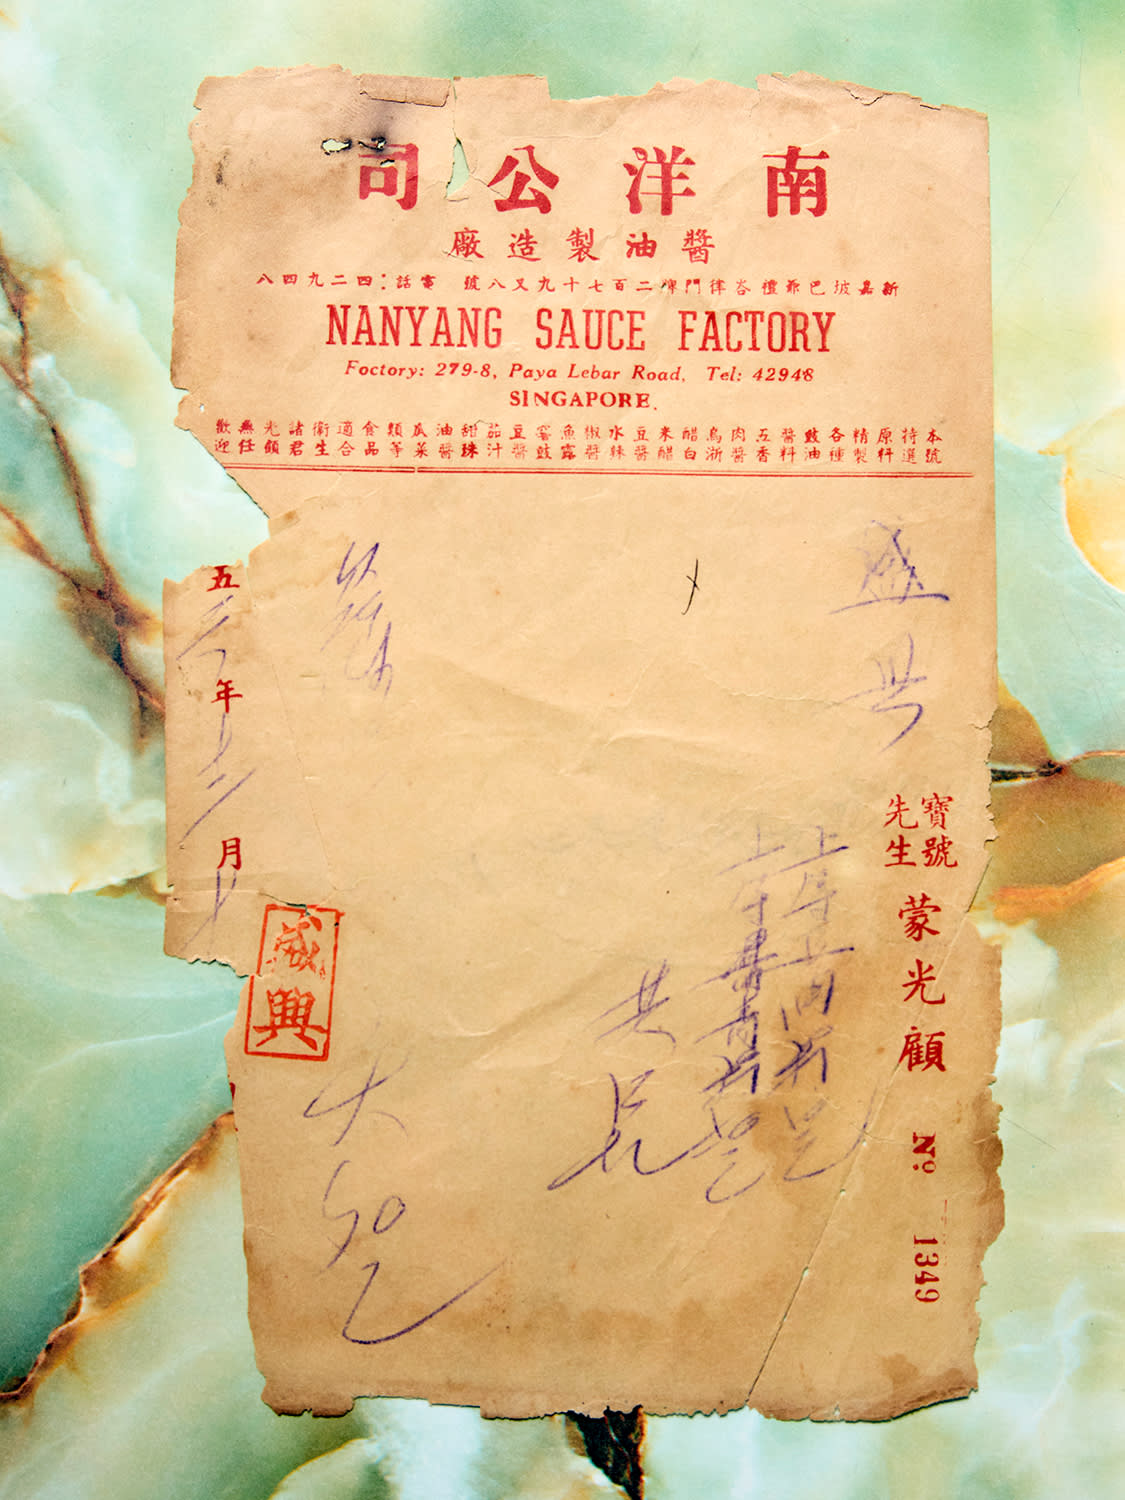 南洋公司
醬油製造廠
新嘉坡巴爺禮峇律門牌二百七十九又八號 電話:四二九四八
NANYANG SAUCE FACTORY
Foctory: 279-8, Paya Lebar Road, Tel: 42948
SINGAPORE.
本號特選原料精製各種豉油醬料五香肉醬烏淅醋白米醋豆醬水辣椒醬魚露窖豉豆醬茄汁甜珠油醬瓜菜類等食品適合衛生諸君光顧無任歡迎
盛兴
寶號
先生
蒙光顧
No 1349
上等
上等
共
五 年 月
盛興